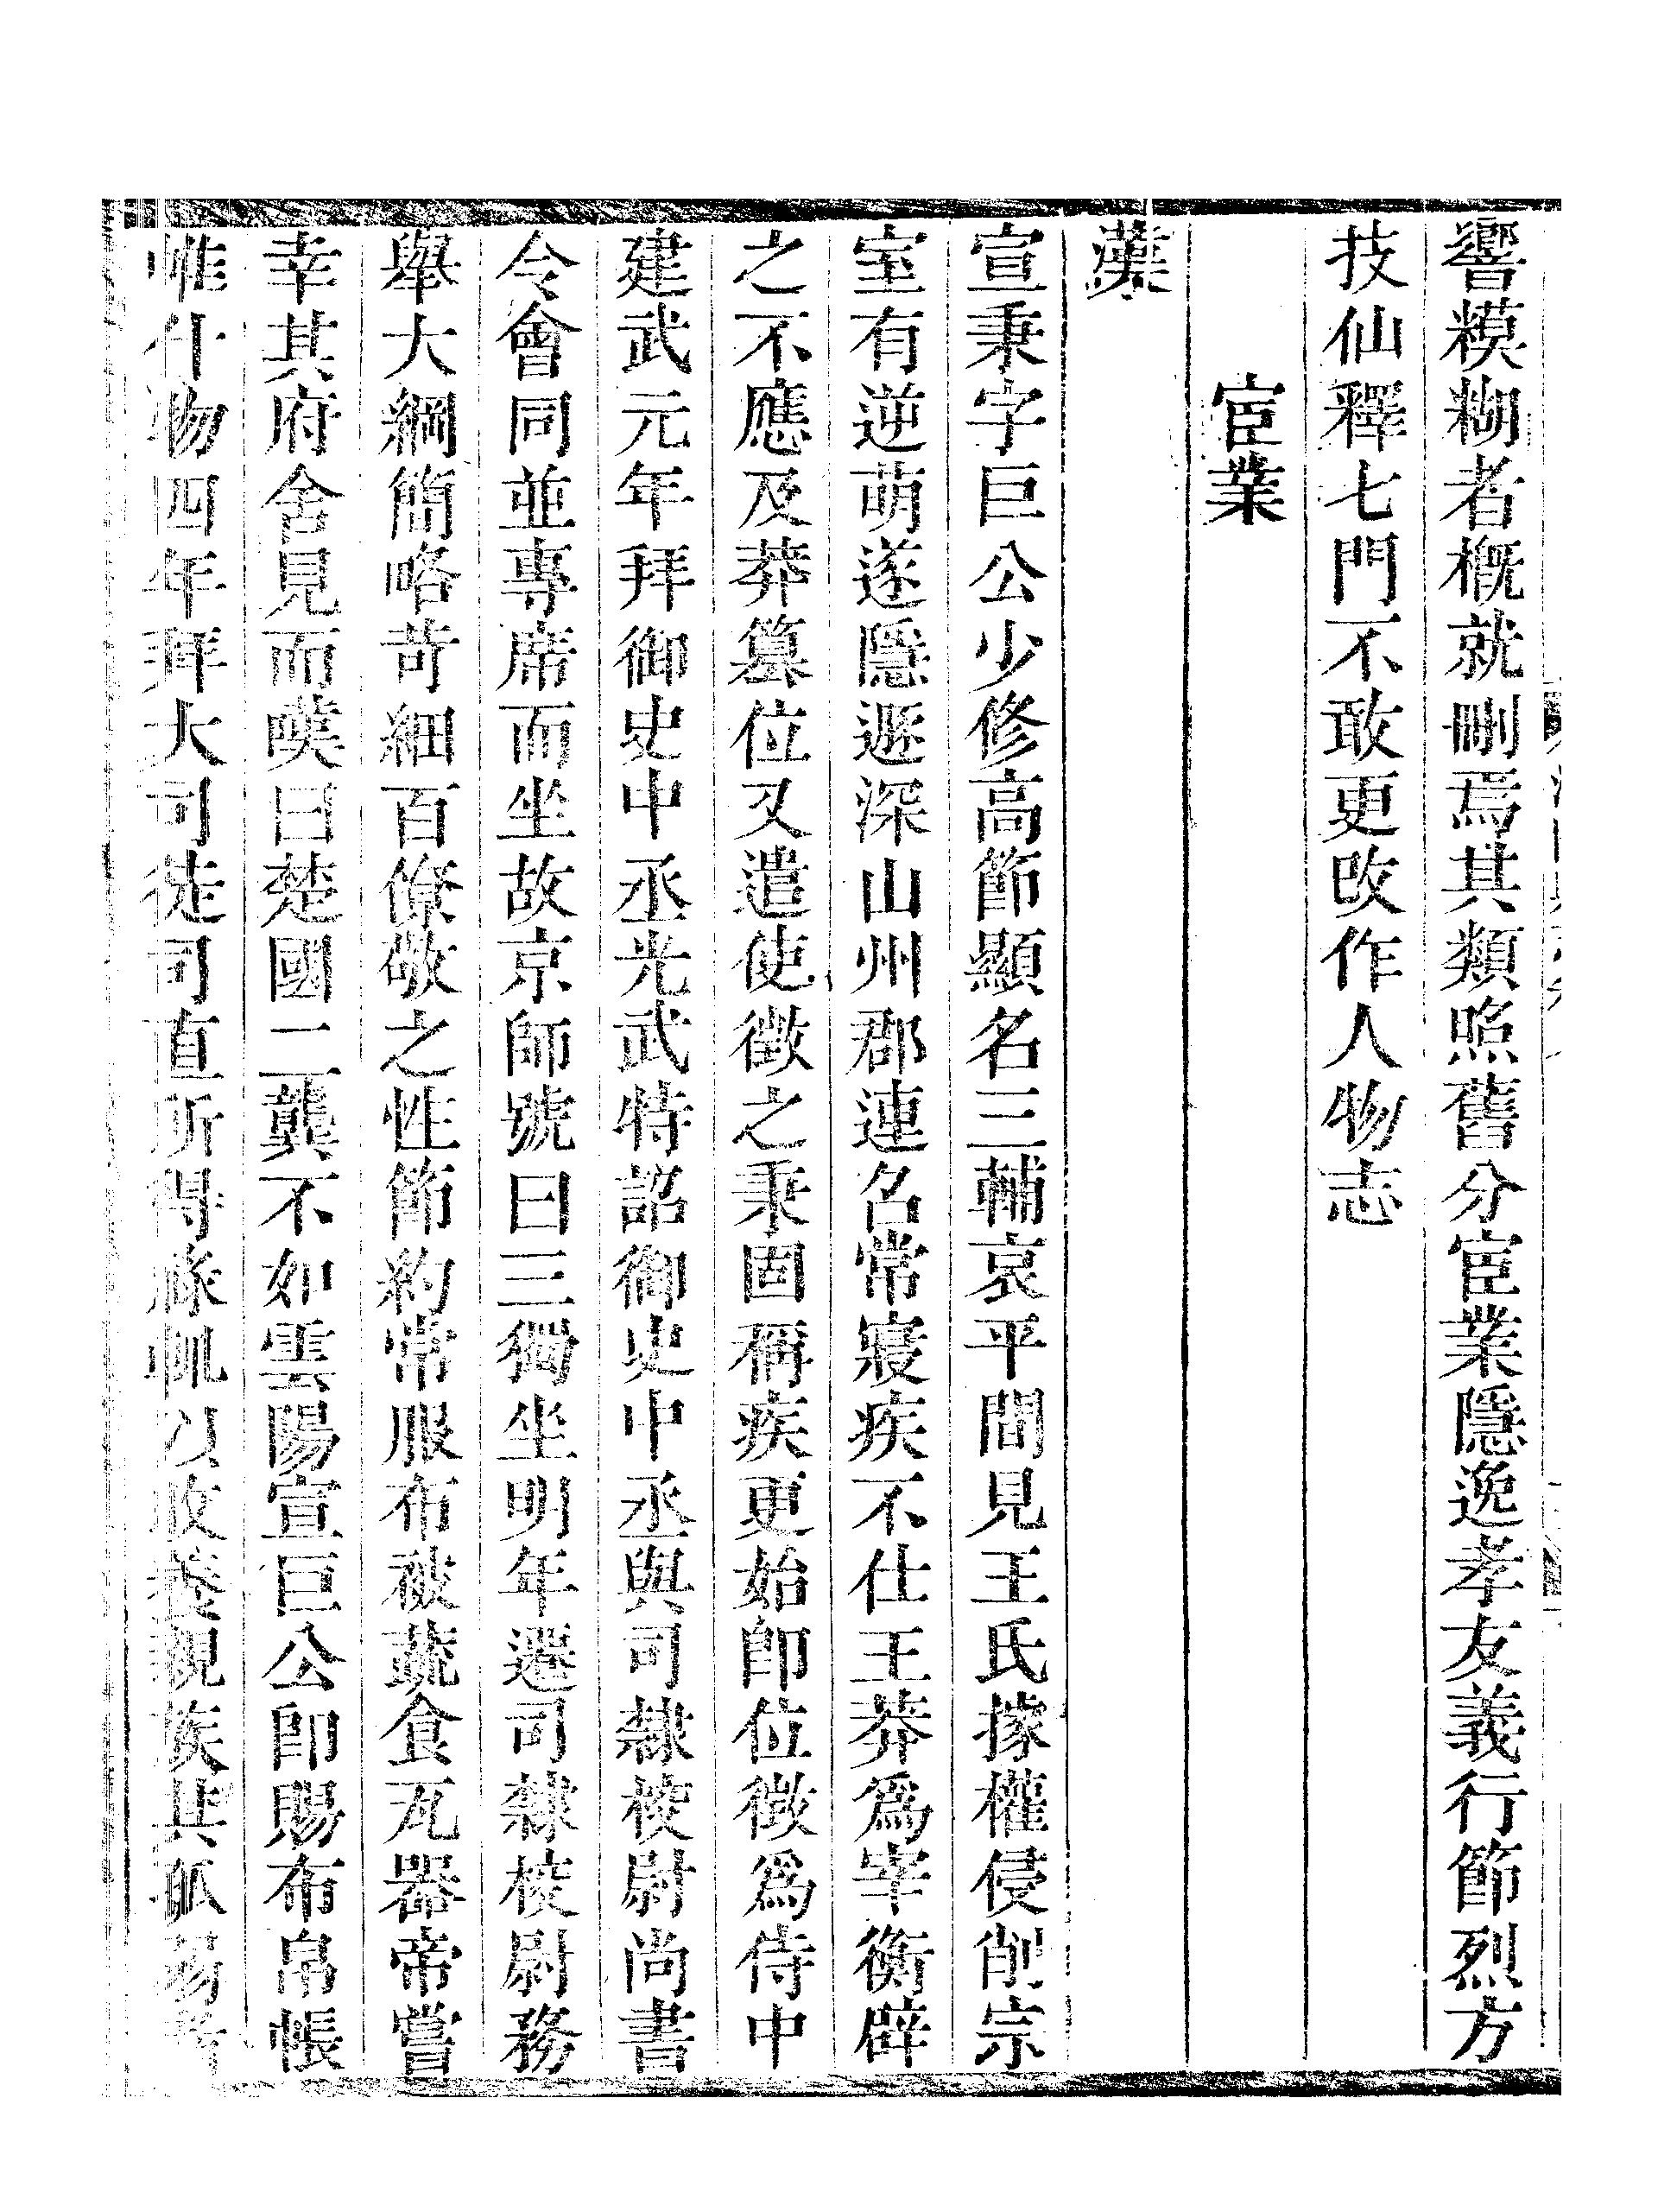 響糢糊者概就刪焉其類照舊分宦業隱逸孝友義行節烈方
技仙釋七門不敢更改作人物志
宦業
漢
宣秉字巨公少修高節顯名三輔哀平間見王氏據權侵削宗
室有逆萌遂隱遯深山州郡連名常寢疾不仕王莽爲宰衡辟
之不應及莽篡位又遣使徵之秉固稱疾更始卽位徵爲侍中
建武元年拜御史中丞光武特詔御史中丞與司隸校尉尚書
令會同並專席而坐故京師號曰三獨坐明年遷司隸校尉務
舉大綱簡略苛細百僚敬之性節約常服布被蔬食瓦器帝嘗
幸其府舍見而嘆曰楚國二龔不如雲陽宣巨公卽賜布帛帳
帷什物四年拜大司徒司直所得祿輒以收養親族其孤弱者